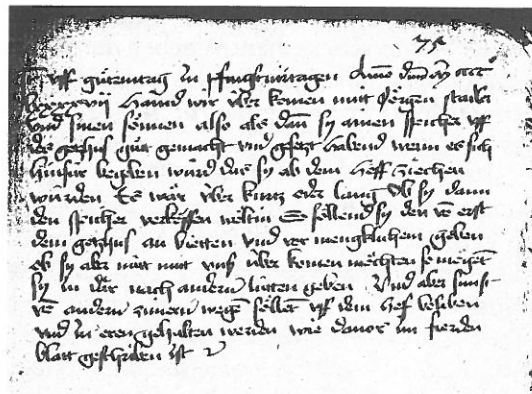 75
Uff gůtemtag in pfingstvirtagen Anno dmi m cccc
lxxxxvii haind wir über komen mitt Jörgen stailer
vnd sinen sönnen also als dan sy ainen speicher vff
des gotzhus gůt gemacht vnd gesetzt habend wenn es sich
hinfür begeben wurd das sy ab dem hoff ziechen
wurden Es wär über kurtz oder lang Ob sy dann
den speicher verkoffen weltin So söllend sy den vo erst
dem gotzhus an bietten vnd vor mengklichem geben
ob sy aber nütt mit vnß über komen möchten so mogent
sy in där nach andern lütten geben Vnd aber sunst
vo andern zimern wegen söllent vff dem hof beliben
vnd in eren gehalten werden wie dauor im fierden
blatt geschriben ist